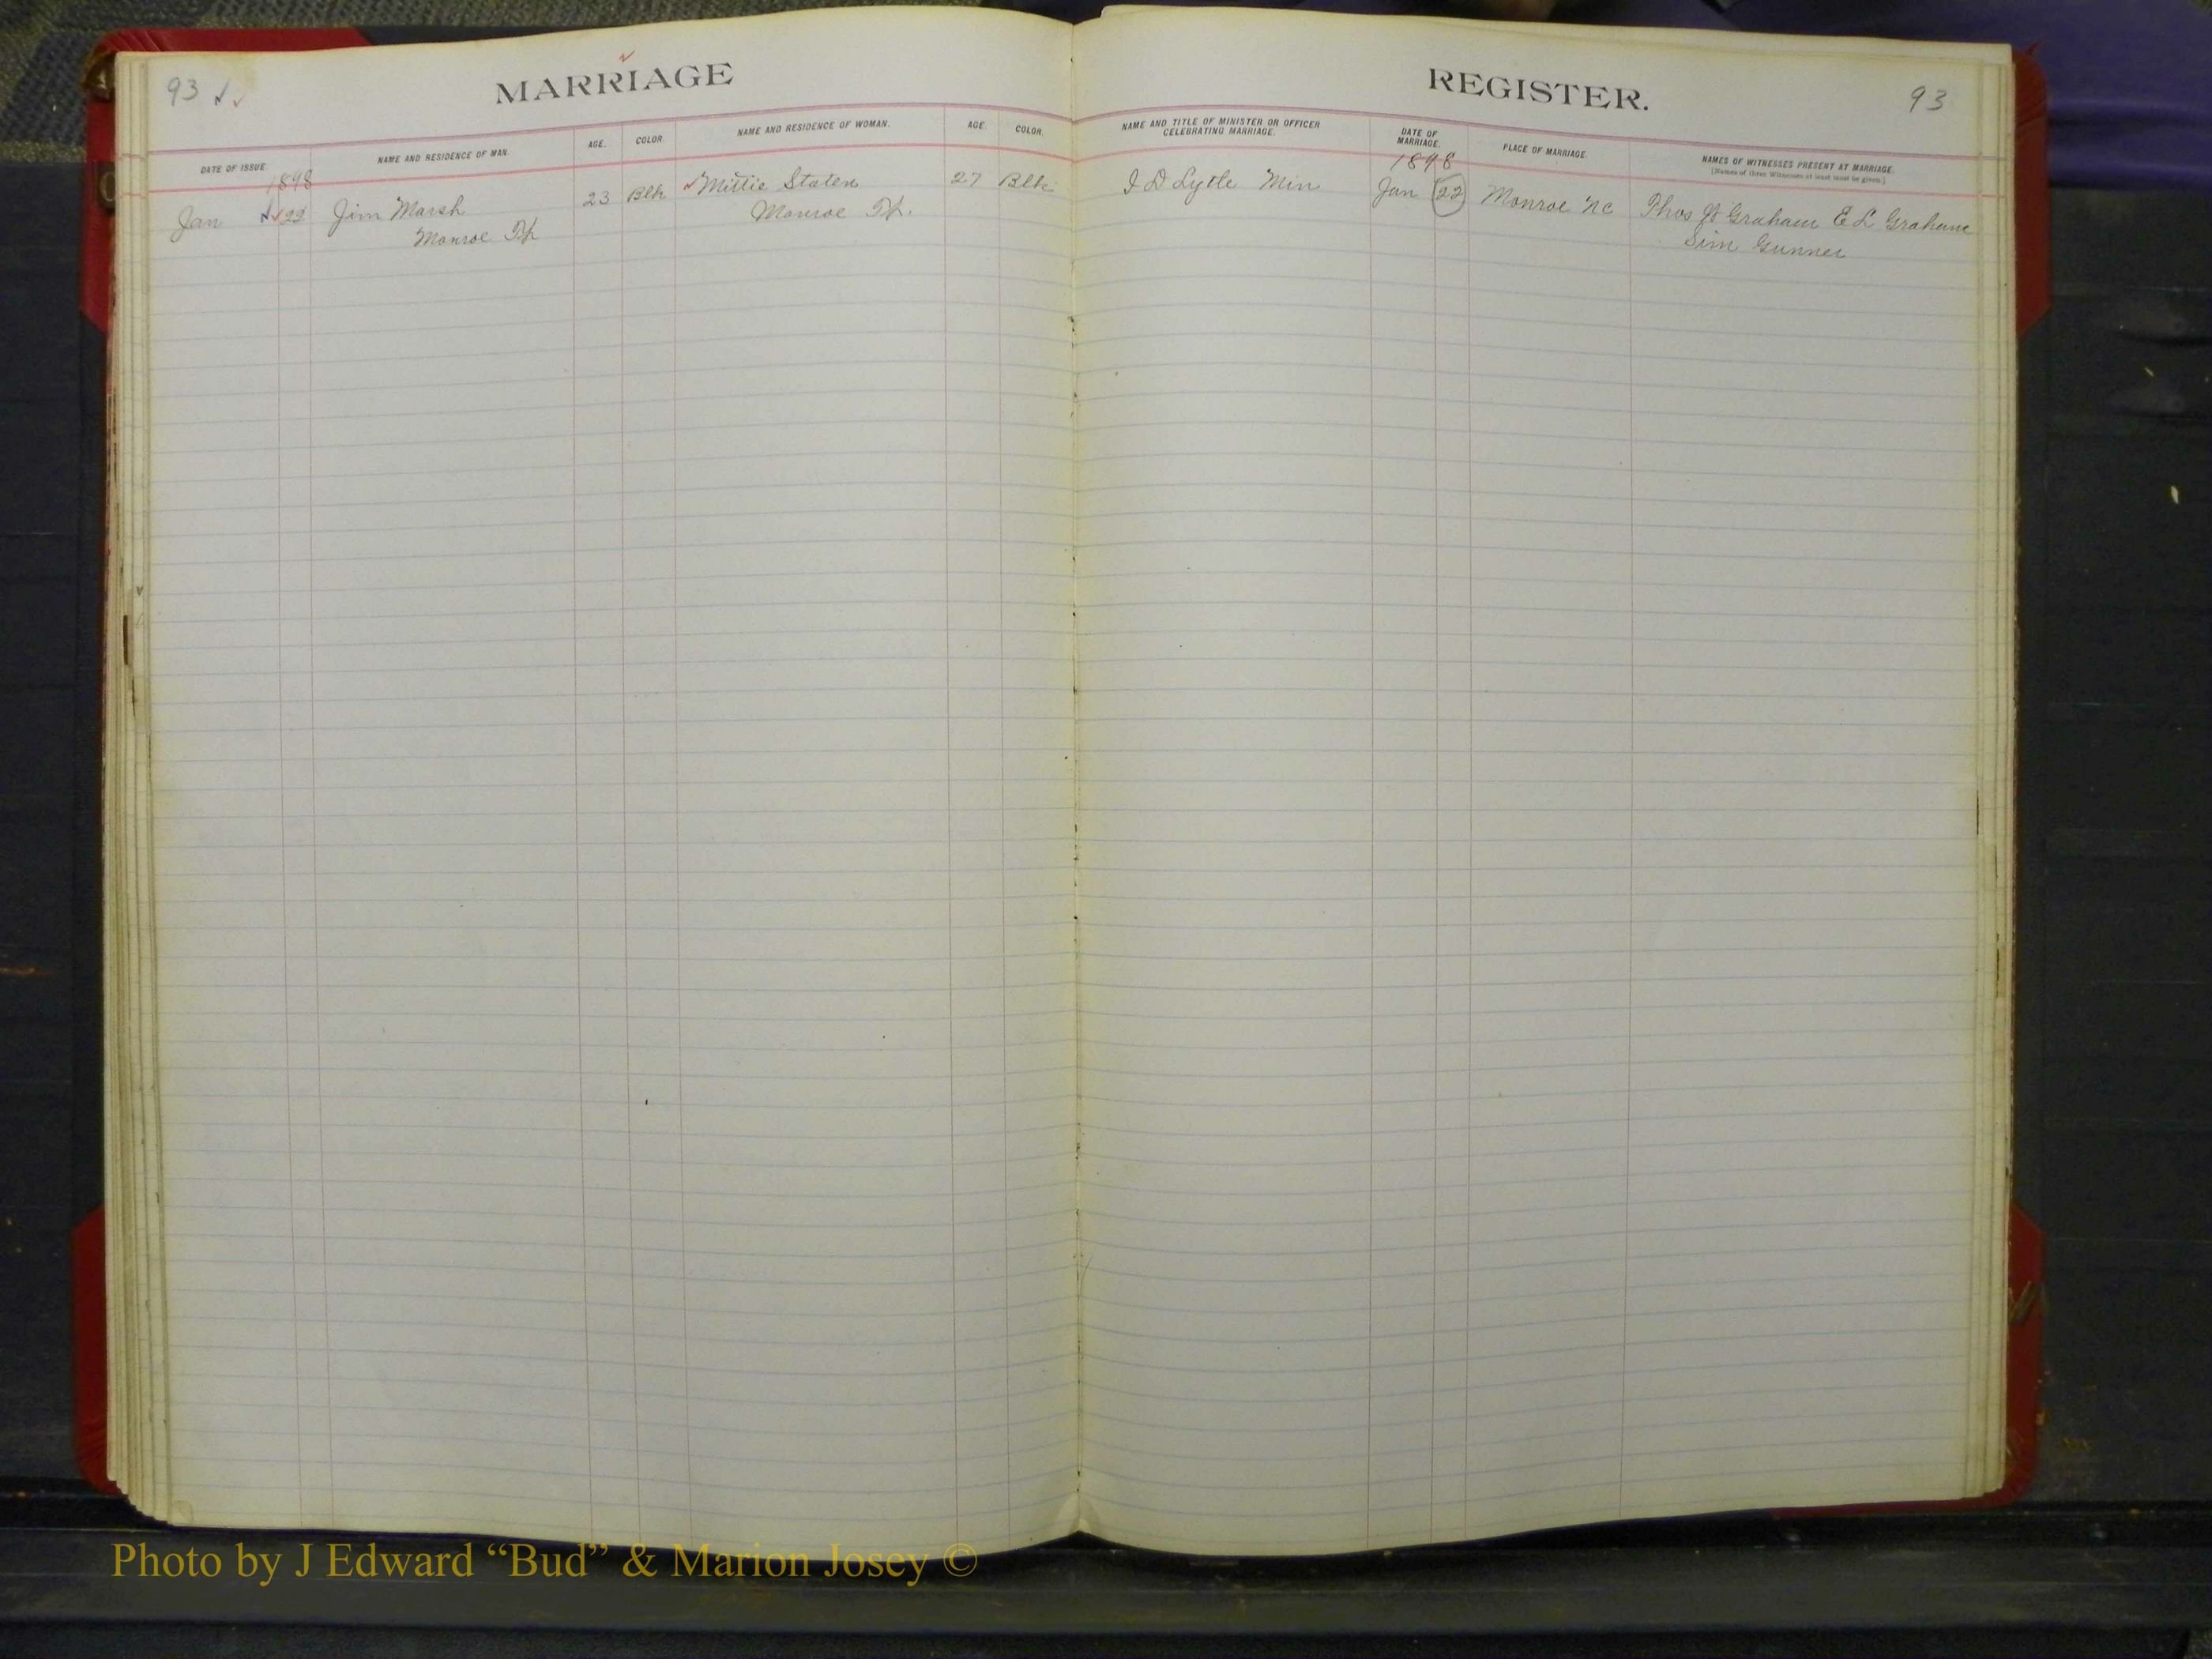 93
MARRIAGE REGISTER.
93
DATE OF ISSUE.
NAME AND RESIDENCE OF MAN.
AGE.
COLOR.
NAME AND RESIDENCE OF WOMAN.
AGE.
COLOR.
NAME AND TITLE OF MINISTER OR OFFICER
CELEBRATING MARRIAGE.
DATE OF
MARRIAGE.
PLACE OF MARRIAGE.
NAMES OF WITNESSES PRESENT AT MARRIAGE.
[Names of three Witnesses at least must be given.]
1898
1898
Jan 22 Jim Marsh 23 Blk Millie Staten 27 Blk J D Lytle Min Jan 22 Monroe NC Thos Graham E L Graham
Monroe Tp Monroe Tp. Sim Gunner
Photo by J Edward “Bud” & Marion Josey ©